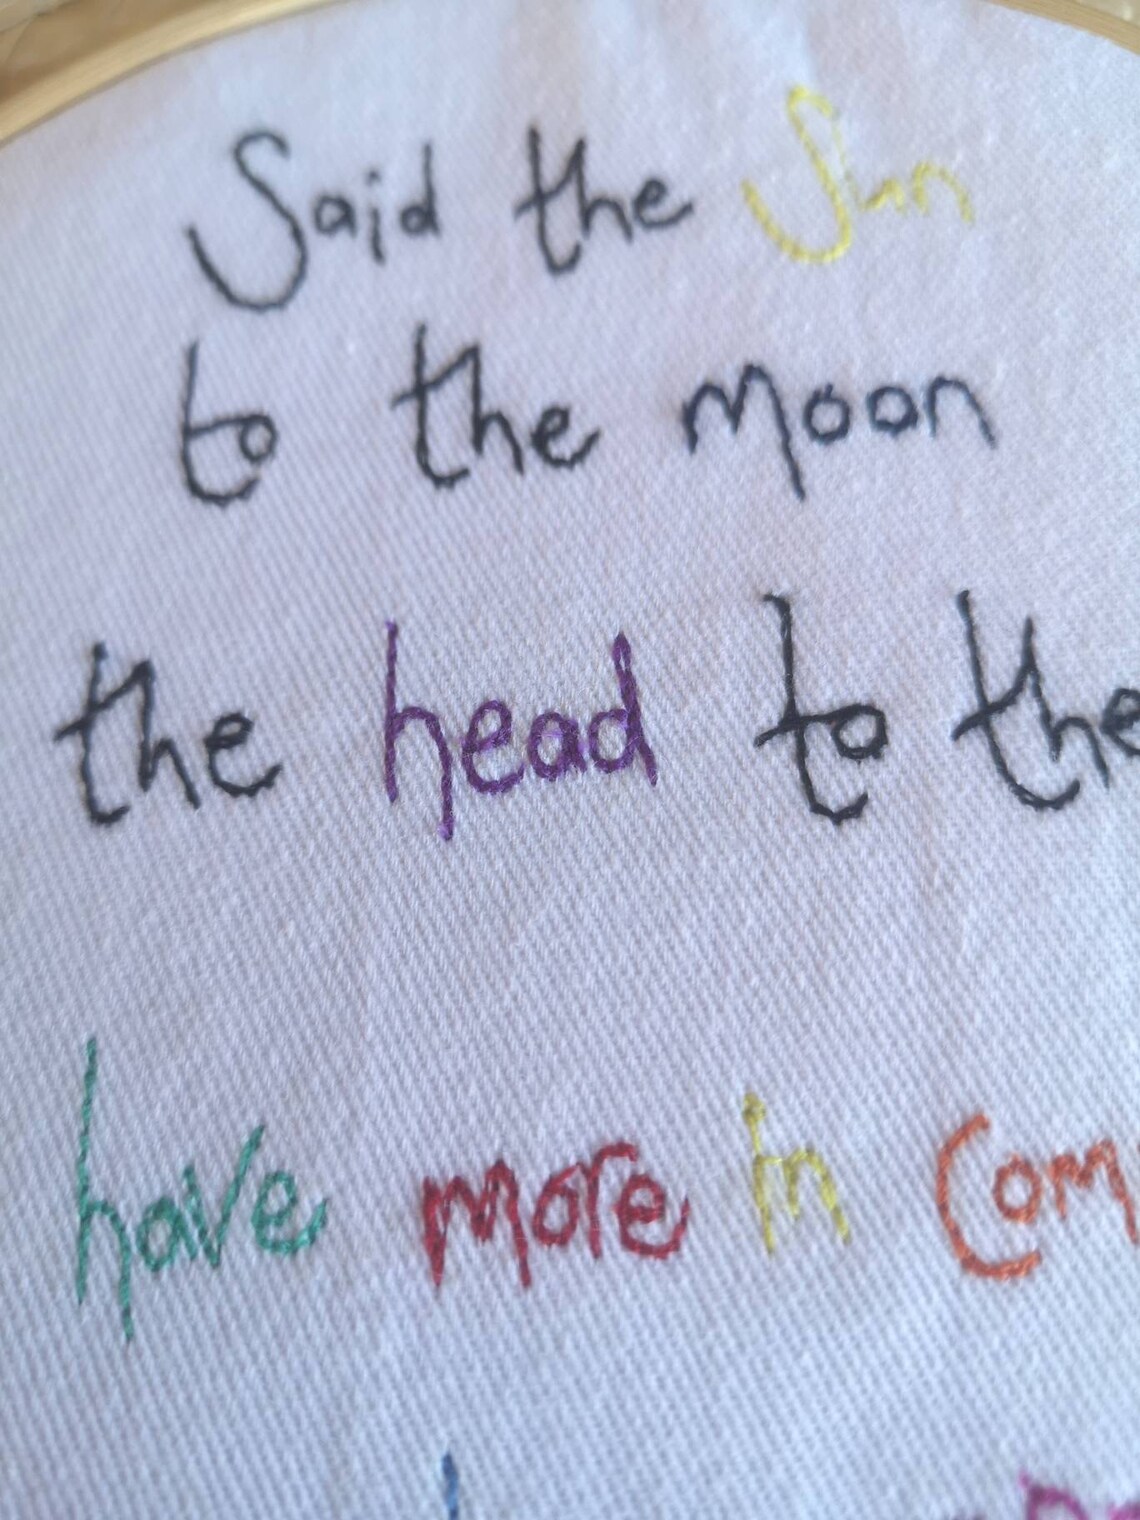 Said the Sun
to the moon
the head to the
have more in com